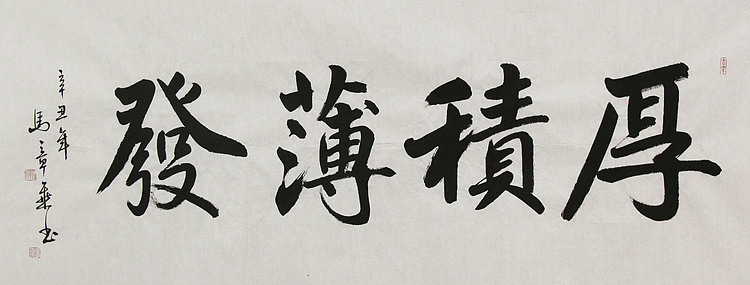 厚積薄發
辛丑年
馬章乘书